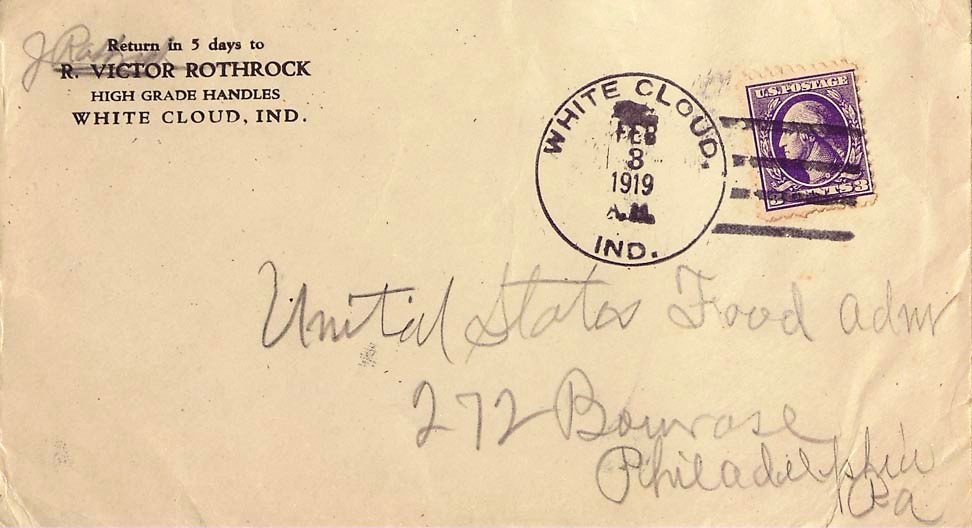 Return in 5 days to
R. VICTOR ROTHROCK
HIGH GRADE HANDLES
WHITE CLOUD, IND.
WHITE CLOUD.
FEB
3
1919
A.M.
IND.
U.S. POSTAGE
3 CENTS 3
United States Food Adm
272 Bourse
Philadelphia
Pa